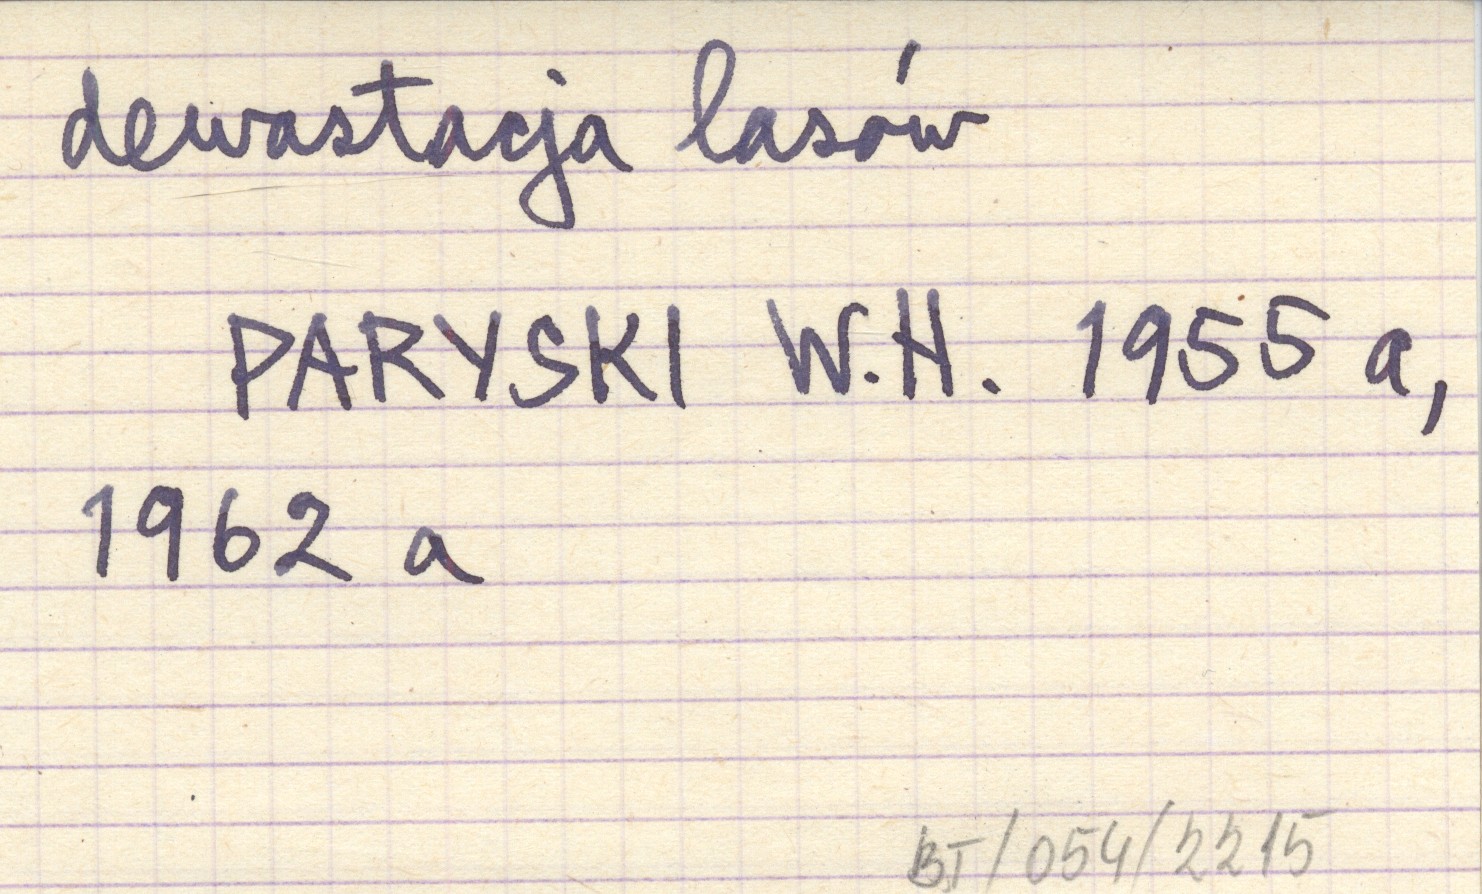 dewastacja lasów
PARYSKI W.H. 1955 a,
1962 a
BT/054/2215